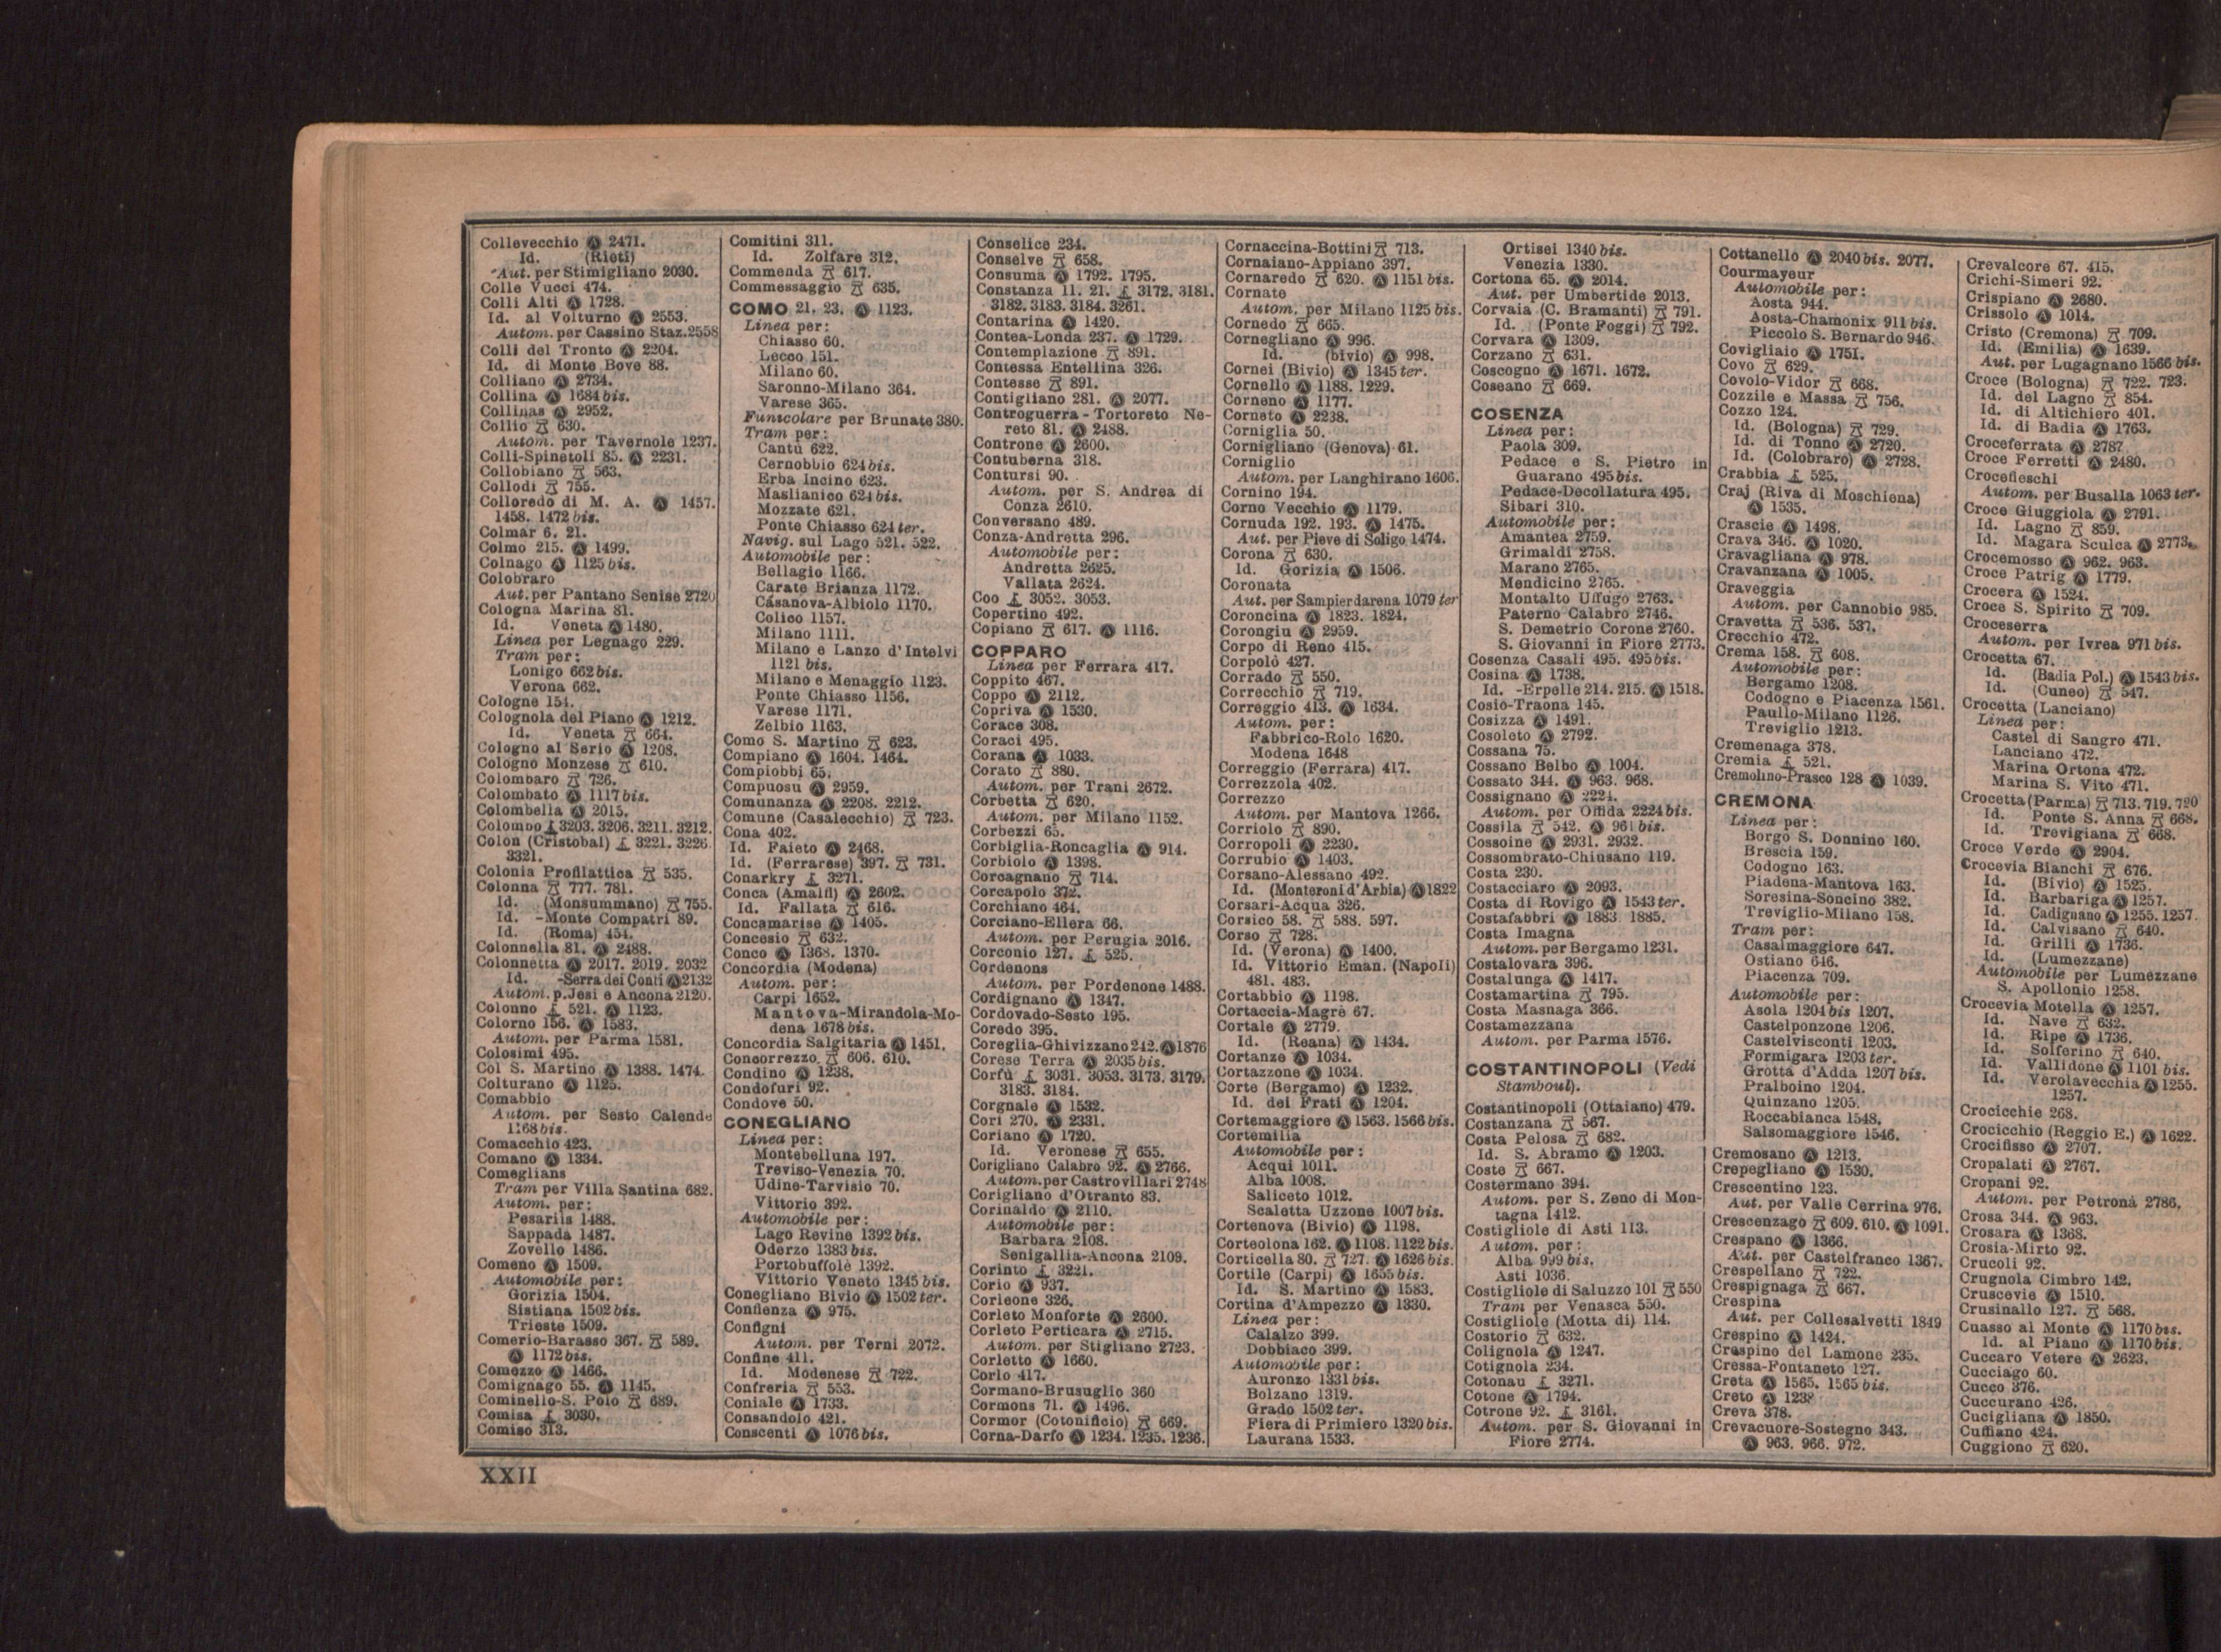 Collevecchio Ⓐ 2471.
Id. (Rieti)
Aut. per Stimigliano 2030.
Colle Vucci 474.
Colli Alti Ⓐ 1728.
Id. al Volturno Ⓐ 2553.
Autom. per Cassino Staz. 2558
Colli del Tronto Ⓐ 2204.
Id. di Monte Bove 88.
Colliano Ⓐ 2734.
Collina Ⓐ 1684 bis.
Collinas Ⓐ 2952.
Collio 630.
Autom. per Tavernole 1237.
Colli-Spinetoli 85. Ⓐ 2231.
Collobiano 563.
Collodi 755.
Colloredo di M. A. Ⓐ 1457.
1458. 1472 bis.
Colmar 6. 21.
Colmo 215. Ⓐ 1499.
Colnago Ⓐ 1125 bis.
Colobraro
Aut. per Pantano Senise 2720
Cologna Marina 81.
Id. Veneta Ⓐ 1480.
Linea per Legnago 229.
Tram per:
Lonigo 662 bis.
Verona 662.
Cologne 154.
Colognola del Piano Ⓐ 1212.
Id. Veneta 664.
Cologno al Serio Ⓐ 1208.
Cologno Monzese 610.
Colombaro 726.
Colombato Ⓐ 1117 bis.
Colombella Ⓐ 2015.
Colombo 3203. 3206. 3211. 3212.
Colon (Cristobal) 3221. 3226.
3321.
Colonia Profilattica 535.
Colonna 777. 781.
Id. (Monsummano) 755.
Id. -Monte Compatri 89.
Id. (Roma) 454.
Colonnella 81. Ⓐ 2488.
Colonnetta Ⓐ 2017. 2019. 2032
Id. -Serra dei Conti Ⓐ 2132
Autom. p. Jesi e Ancona 2120.
Colonno 521. Ⓐ 1123.
Colorno 156. Ⓐ 1583.
Autom. per Parma 1581.
Colosimi 495.
Col S. Martino Ⓐ 1388. 1474.
Colturano Ⓐ 1125.
Comabbio
Autom. per Sesto Calende
1168 bis.
Comacchio 423.
Comano Ⓐ 1334.
Comeglians
Tram per Villa Santina 682.
Autom. per:
Pesariis 1488.
Sappada 1487.
Zovello 1486.
Comeno Ⓐ 1509.
Automobile per:
Gorizia 1504.
Sistiana 1502 bis.
Trieste 1509.
Comerio-Barasso 367. 589.
Ⓐ 1172 bis.
Comezzo Ⓐ 1466.
Comignago 55. Ⓐ 1145.
Cominello-S. Polo 689.
Comisa 3030.
Comiso 313.
Comitini 311.
Id. Zolfare 312.
Commenda 617.
Commessaggio 635.
COMO 21. 23. Ⓐ 1123.
Linea per:
Chiasso 60.
Lecco 151.
Milano 60.
Saronno-Milano 364.
Varese 365.
Funicolare per Brunate 380.
Tram per:
Cantù 622.
Cernobbio 624 bis.
Erba Incino 623.
Maslianico 624 bis.
Mozzate 621.
Ponte Chiasso 624 ter.
Navig. sul Lago 521. 522.
Automobile per:
Bellagio 1166.
Carate Brianza 1172.
Casanova-Albiolo 1170.
Colico 1157.
Milano 1111.
Milano e Lanzo d'Intelvi
1121 bis.
Milano e Menaggio 1123.
Ponte Chiasso 1156.
Varese 1171.
Zelbio 1163.
Como S. Martino 623.
Compiano Ⓐ 1604. 1464.
Compiobbi 65.
Compuosu Ⓐ 2959.
Comunanza Ⓐ 2208. 2212.
Comune (Casalecchio) 723.
Cona 402.
Id. Faieto Ⓐ 2468.
Id. (Ferrarese) 397. 731.
Conarkry 3271.
Conca (Amalfi) Ⓐ 2602.
Id. Fallata 616.
Concamarise Ⓐ 1405.
Concesio 632.
Conco Ⓐ 1368. 1370.
Concordia (Modena)
Autom. per:
Carpi 1652.
Mantova-Mirandola-Mo-
dena 1678 bis.
Concordia Salgitaria Ⓐ 1451.
Concorrezzo 606. 610.
Condino Ⓐ 1238.
Condofuri 92.
Condove 50.
CONEGLIANO
Linea per:
Montebelluna 197.
Treviso-Venezia 70.
Udine-Tarvisio 70.
Vittorio 392.
Automobile per:
Lago Revine 1392 bis.
Oderzo 1383 bis.
Portobuffolè 1392.
Vittorio Veneto 1345 bis.
Conegliano Bivio Ⓐ 1502 ter.
Confienza Ⓐ 975.
Configni
Autom. per Terni 2072.
Confine 411.
Id. Modenese 722.
Confreria 553.
Coniale Ⓐ 1733.
Consandolo 421.
Conscenti Ⓐ 1076 bis.
Conselice 234.
Conselve 658.
Consuma Ⓐ 1792. 1795.
Constanza 11. 21. 3172. 3181.
3182. 3183. 3184. 3261.
Contarina Ⓐ 1420.
Contea-Londa 237. Ⓐ 1729.
Contemplazione 891.
Contessa Entellina 326.
Contesse 891.
Contigliano 281. Ⓐ 2077.
Controguerra - Tortoreto Ne-
reto 81. Ⓐ 2488.
Controne Ⓐ 2600.
Contuberna 318.
Contursi 90.
Autom. per S. Andrea di
Conza 2610.
Conversano 489.
Conza-Andretta 296.
Automobile per:
Andretta 2625.
Vallata 2624.
Coo 3052. 3053.
Copertino 492.
Copiano 617. Ⓐ 1116.
COPPARO
Linea per Ferrara 417.
Coppito 467.
Coppo Ⓐ 2112.
Copriva Ⓐ 1530.
Corace 308.
Coraci 495.
Corana Ⓐ 1033.
Corato 880.
Autom. per Trani 2672.
Corbetta 620.
Autom. per Milano 1152.
Corbezzi 65.
Corbiglia-Roncaglia Ⓐ 914.
Corbiolo Ⓐ 1398.
Corcagnano 714.
Corcapolo 372.
Corchiano 464.
Corciano-Ellera 66.
Autom. per Perugia 2016.
Corconio 127. 525.
Cordenons
Autom. per Pordenone 1488.
Cordignano Ⓐ 1347.
Cordovado-Sesto 195.
Coredo 395.
Coreglia-Ghivizzano 242. Ⓐ 1876
Corese Terra Ⓐ 2035 bis.
Corfù 3031. 3053. 3173. 3179.
3183. 3184.
Corgnale Ⓐ 1532.
Cori 270. Ⓐ 2331.
Coriano Ⓐ 1720.
Id. Veronese 655.
Corigliano Calabro 92. Ⓐ 2766.
Autom. per Castrovillari 2748
Corigliano d'Otranto 83.
Corinaldo Ⓐ 2110.
Automobile per:
Barbara 2108.
Senigallia-Ancona 2109.
Corinto 3221.
Corio Ⓐ 937.
Corleone 326.
Corleto Monforte Ⓐ 2600.
Corleto Perticara Ⓐ 2715.
Autom. per Stigliano 2723.
Corletto Ⓐ 1660.
Corlo 417.
Cormano-Brusuglio 360
Cormons 71. Ⓐ 1496.
Cormor (Cotonificio) 669.
Corna-Darfo Ⓐ 1234. 1235. 1236.
Cornaccina-Bottini 713.
Cornaiano-Appiano 397.
Cornaredo 620. Ⓐ 1151 bis.
Cornate
Autom. per Milano 1125 bis.
Cornedo 665.
Cornegliano Ⓐ 996.
Id. (bivio) Ⓐ 998.
Cornei (Bivio) Ⓐ 1345 ter.
Cornello Ⓐ 1188. 1229.
Corneno Ⓐ 1177.
Corneto Ⓐ 2238.
Corniglia 50.
Cornigliano (Genova) 61.
Corniglio
Autom. per Langhirano 1606.
Cornino 194.
Corno Vecchio Ⓐ 1179.
Cornuda 192. 193. Ⓐ 1475.
Aut. per Pieve di Soligo 1474.
Corona 630.
Id. Gorizia Ⓐ 1506.
Coronata
Aut. per Sampierdarena 1079 ter
Coroncina Ⓐ 1823. 1824.
Corongiu Ⓐ 2959.
Corpo di Reno 415.
Corpolò 427.
Corrado 550.
Correcchio 719.
Correggio 413. Ⓐ 1634.
Autom. per:
Fabbrico-Rolo 1620.
Modena 1648
Correggio (Ferrara) 417.
Correzzola 402.
Correzzo
Autom. per Mantova 1266.
Corriolo 890.
Corropoli Ⓐ 2230.
Corrubio Ⓐ 1403.
Corsano-Alessano 492.
Id. (Monteroni d'Arbia) Ⓐ 1822
Corsari-Acqua 326.
Corsico 58. 588. 597.
Corso 728.
Id. (Verona) Ⓐ 1400.
Id. Vittorio Eman. (Napoli)
481. 483.
Cortabbio Ⓐ 1198.
Cortaccia-Magrè 67.
Cortale Ⓐ 2779.
Id. (Reana) Ⓐ 1434.
Cortanze Ⓐ 1034.
Cortazzone Ⓐ 1034.
Corte (Bergamo) Ⓐ 1232.
Id. dei Frati Ⓐ 1204.
Cortemaggiore Ⓐ 1563. 1566 bis.
Cortemilia
Automobile per:
Acqui 1011.
Alba 1008.
Saliceto 1012.
Scaletta Uzzone 1007 bis.
Cortenova (Bivio) Ⓐ 1198.
Corteolona 162. Ⓐ 1108. 1122 bis.
Corticella 80. 727. Ⓐ 1626 bis.
Cortile (Carpi) Ⓐ 1655 bis.
Id. S. Martino Ⓐ 1583.
Cortina d'Ampezzo Ⓐ 1330.
Linea per:
Calalzo 399.
Dobbiaco 399.
Automobile per:
Auronzo 1331 bis.
Bolzano 1319.
Grado 1502 ter.
Fiera di Primiero 1320 bis.
Laurana 1533.
Ortisei 1340 bis.
Venezia 1330.
Cortona 65. Ⓐ 2014.
Aut. per Umbertide 2013.
Corvaia (C. Bramanti) 791.
Id. (Ponte Foggi) 792.
Corvara Ⓐ 1309.
Corzano 631.
Coscogno Ⓐ 1671. 1672.
Coseano 669.
COSENZA
Linea per:
Paola 309.
Pedace e S. Pietro in
Guarano 495 bis.
Pedace-Decollatura 495.
Sibari 310.
Automobile per:
Amantea 2759.
Grimaldi 2758.
Marano 2765.
Mendicino 2765.
Montalto Uffugo 2763.
Paterno Calabro 2746.
S. Demetrio Corone 2760.
S. Giovanni in Fiore 2773.
Cosenza Casali 495. 495 bis.
Cosina Ⓐ 1738.
Id. -Erpelle 214. 215. Ⓐ 1518.
Cosio-Traona 145.
Cosizza Ⓐ 1491.
Cosoleto Ⓐ 2792.
Cossana 75.
Cossano Belbo Ⓐ 1004.
Cossato 344. Ⓐ 963. 968.
Cossignano Ⓐ 2224.
Autom. per Offida 2224 bis.
Cossila 542. Ⓐ 961 bis.
Cossoine Ⓐ 2931. 2932.
Cossombrato-Chiusano 119.
Costa 230.
Costacciaro Ⓐ 2093.
Costa di Rovigo Ⓐ 1543 ter.
Costafabbri Ⓐ 1883. 1885.
Costa Imagna
Autom. per Bergamo 1231.
Costalovara 396.
Costalunga Ⓐ 1417.
Costamartina 795.
Costa Masnaga 366.
Costamezzana
Autom. per Parma 1576.
COSTANTINOPOLI (Vedi
Stamboul).
Costantinopoli (Ottaiano) 479.
Costanzana 567.
Costa Pelosa 682.
Id. S. Abramo Ⓐ 1203.
Coste 667.
Costermano 394.
Autom. per S. Zeno di Mon-
tagna 1412.
Costigliole di Asti 113.
Autom. per:
Alba 999 bis.
Asti 1036.
Costigliole di Saluzzo 101 550
Tram per Venasca 550.
Costigliole (Motta di) 114.
Costorio 632.
Colignola Ⓐ 1247.
Cotignola 234.
Cotonau 3271.
Cotone Ⓐ 1794.
Cotrone 92. 3161.
Autom. per S. Giovanni in
Fiore 2774.
Cottanello Ⓐ 2040 bis. 2077.
Courmayeur
Automobile per:
Aosta 944.
Aosta-Chamonix 911 bis.
Piccolo S. Bernardo 946.
Covigliaio Ⓐ 1751.
Covo 629.
Covolo-Vidor 668.
Cozzile e Massa 756.
Cozzo 124.
Id. (Bologna) 729.
Id. di Tonno Ⓐ 2720.
Id. (Colobraro) Ⓐ 2728.
Crabbia 525.
Craj (Riva di Moschiena)
Ⓐ 1535.
Crascie Ⓐ 1498.
Crava 346. Ⓐ 1020.
Cravagliana Ⓐ 978.
Cravanzana Ⓐ 1005.
Craveggia
Autom. per Cannobio 985.
Cravetta 536. 537.
Crecchio 472.
Crema 158. 608.
Automobile per:
Bergamo 1208.
Codogno e Piacenza 1561.
Paullo-Milano 1126.
Treviglio 1213.
Cremenaga 378.
Cremia 521.
Cremolino-Prasco 128 Ⓐ 1039.
CREMONA
Linea per:
Borgo S. Donnino 160.
Brescia 159.
Codogno 163.
Piadena-Mantova 163.
Soresina-Soncino 382.
Treviglio-Milano 158.
Tram per:
Casalmaggiore 647.
Ostiano 646.
Piacenza 709.
Automobile per:
Asola 1204 bis 1207.
Castelponzone 1206.
Castelvisconti 1203.
Formigara 1203 ter.
Grotta d'Adda 1207 bis.
Pralboino 1204.
Quinzano 1205.
Roccabianca 1548.
Salsomaggiore 1546.
Cremosano Ⓐ 1213.
Crepegliano Ⓐ 1530.
Crescentino 123.
Aut. per Valle Cerrina 976.
Crescenzago 609. 610. Ⓐ 1091.
Crespano Ⓐ 1366.
Aut. per Castelfranco 1367.
Crespellano 722.
Crespignaga 667.
Crespina
Aut. per Collesalvetti 1849
Crespino Ⓐ 1424.
Crespino del Lamone 235.
Cressa-Fontaneto 127.
Creta Ⓐ 1565. 1565 bis.
Creto Ⓐ 1238
Creva 378.
Crevacuore-Sostegno 343.
Ⓐ 963. 966. 972.
Crevalcore 67. 415.
Crichi-Simeri 92.
Crispiano Ⓐ 2680.
Crissolo Ⓐ 1014.
Cristo (Cremona) 709.
Id. (Emilia) Ⓐ 1639.
Aut. per Lugagnano 1566 bis.
Croce (Bologna) 722. 723.
Id. del Lagno 854.
Id. di Altichiero 401.
Id. di Badia Ⓐ 1763.
Croceferrata Ⓐ 2787
Croce Ferretti Ⓐ 2480.
Crocefieschi
Autom. per Busalla 1063 ter.
Croce Giuggiola Ⓐ 2791.
Id. Lagno 859.
Id. Magara Sculca Ⓐ 2773.
Crocemosso Ⓐ 962. 963.
Croce Patrig Ⓐ 1779.
Crocera Ⓐ 1524.
Croce S. Spirito 709.
Croceserra
Autom. per Ivrea 971 bis.
Crocetta 67.
Id. (Badia Pol.) Ⓐ 1543 bis.
Id. (Cuneo) 547.
Crocetta (Lanciano)
Linea per:
Castel di Sangro 471.
Lanciano 472.
Marina Ortona 472.
Marina S. Vito 471.
Crocetta (Parma) 713. 719. 720
Id. Ponte S. Anna 668.
Id. Trevigiana 668.
Croce Verde Ⓐ 2904.
Crocevia Bianchi 676.
Id. (Bivio) Ⓐ 1525.
Id. Barbariga Ⓐ 1257.
Id. Cadignano Ⓐ 1255. 1257.
Id. Calvisano 640.
Id. Grilli Ⓐ 1736.
Id. (Lumezzane)
Automobile per Lumezzane
S. Apollonio 1258.
Crocevia Motella Ⓐ 1257.
Id. Nave 632.
Id. Ripe Ⓐ 1736.
Id. Solferino 640.
Id. Vallidone Ⓐ 1101 bis.
Id. Verolavecchia Ⓐ 1255.
1257.
Crocicchie 268.
Crocicchio (Reggio E.) Ⓐ 1622.
Crocifisso Ⓐ 2707.
Cropalati Ⓐ 2767.
Cropani 92.
Autom. per Petronà 2786.
Crosa 344. Ⓐ 963.
Crosara Ⓐ 1368.
Crosia-Mirto 92.
Crucoli 92.
Crugnola Cimbro 142.
Cruscevie Ⓐ 1510.
Crusinallo 127. 568.
Cuasso al Monte Ⓐ 1170 bis.
Id. al Piano Ⓐ 1170 bis.
Cuccaro Vetere Ⓐ 2623.
Cucciago 60.
Cucco 376.
Cuccurano 426.
Cucigliana Ⓐ 1850.
Cuffiano 424.
Cuggiono 620.
XXII